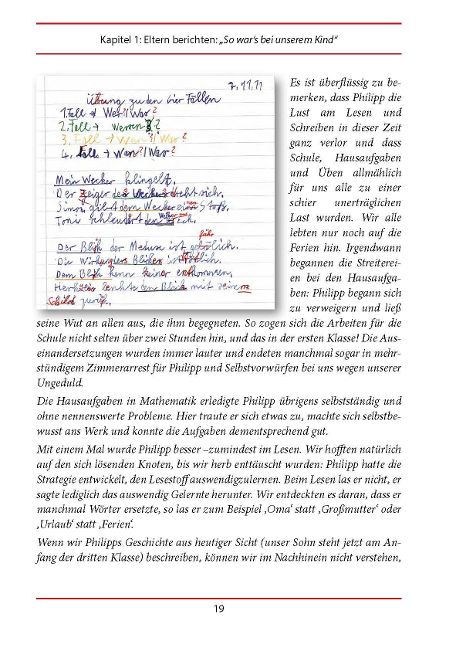 Kapitel 1: Eltern berichten: „So war's bei unserem Kind“
7.11.11
Übung zu den vier Fällen
1. Fall → Wer?/Was?
2. Fall → Wessen?
3. Fall → Wem?/Was?
4. Fall → Wen?/Was?
Mein Wecker klingelt.
Der Zeiger des Weckers dreht sich.
Simon gibt dem Wecker einen Stoß.
Toni schleudert den Wecker
Der Blick der Medusa ist
Die des Blickes ist
Dem Blick kann keiner entkommen.
Herkules lenkte den Blick mit seinem
Schild zurück.
Es ist überflüssig zu be-
merken, dass Philipp die
Lust am Lesen und
Schreiben in dieser Zeit
ganz verlor und dass
Schule, Hausaufgaben
und Üben allmählich
für uns alle zu einer
schier unerträglichen
Last wurden. Wir alle
lebten nur noch auf die
Ferien hin. Irgendwann
begannen die Streiterei-
en bei den Hausaufga-
ben: Philipp begann sich
zu verweigern und ließ
seine Wut an allen aus, die ihm begegneten. So zogen sich die Arbeiten für die
Schule nicht selten über zwei Stunden hin, und das in der ersten Klasse! Die Aus-
einandersetzungen wurden immer lauter und endeten manchmal sogar in mehr-
stündigem Zimmerarrest für Philipp und Selbstvorwürfen bei uns wegen unserer
Ungeduld.
Die Hausaufgaben in Mathematik erledigte Philipp übrigens selbstständig und
ohne nennenswerte Probleme. Hier traute er sich etwas zu, machte sich selbstbe-
wusst ans Werk und konnte die Aufgaben dementsprechend gut.
Mit einem Mal wurde Philipp besser –zumindest im Lesen. Wir hofften natürlich
auf den sich lösenden Knoten, bis wir herb enttäuscht wurden: Philipp hatte die
Strategie entwickelt, den Lesestoff auswendigzulernen. Beim Lesen las er nicht, er
sagte lediglich das auswendig Gelernte herunter. Wir entdeckten es daran, dass er
manchmal Wörter ersetzte, so las er zum Beispiel ‚Oma‘ statt ‚Großmutter‘ oder
‚Urlaub‘ statt ‚Ferien‘.
Wenn wir Philipps Geschichte aus heutiger Sicht (unser Sohn steht jetzt am An-
fang der dritten Klasse) beschreiben, können wir im Nachhinein nicht verstehen,
19